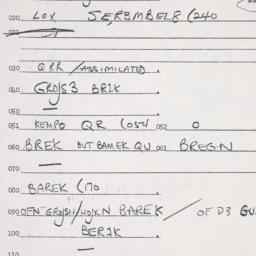 020. LOX SE,RƏMBEL8 (240
021
030 QRR /ASSIMILATED.
040 GROJS3 BR1K
050
051 KEMPO QR (054 052 0
060 BREK BUT BAMEK QU 061 BREGN
070
080 BAREK (170
090 OFN GROJSH/ N BAREK / OF D3 GU
100 BER1K
110